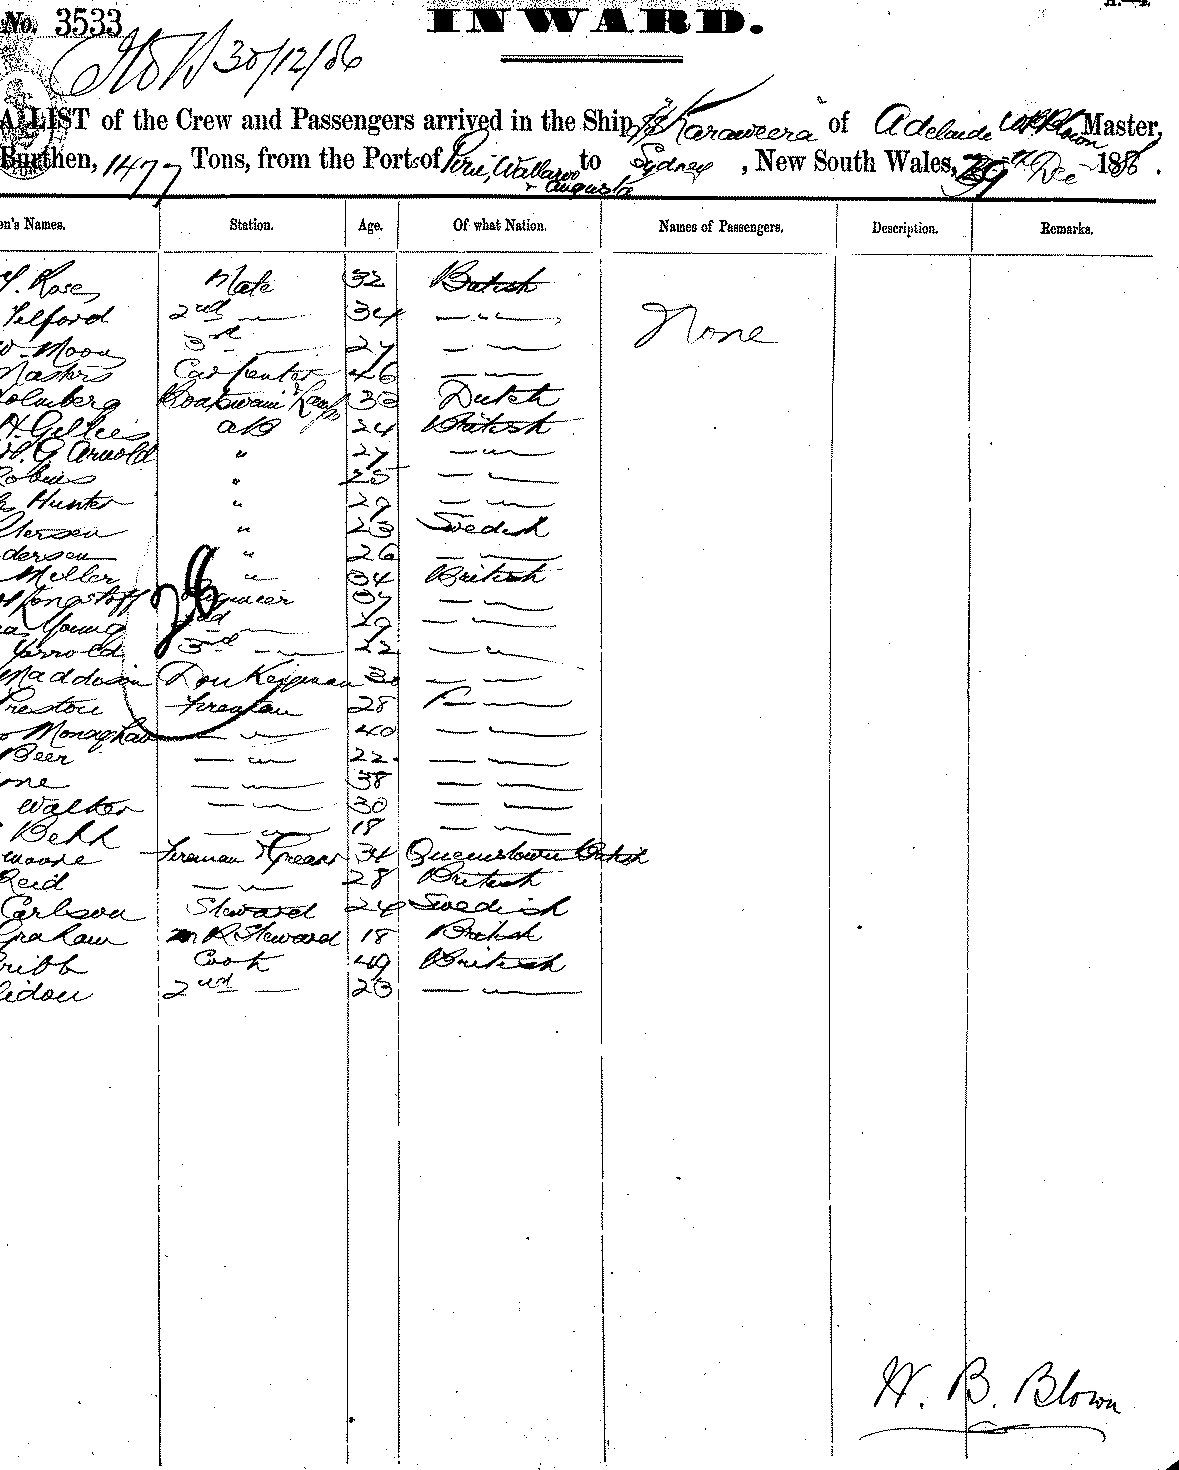 No. 3533
INWARD.
30/12/86
A LIST of the Crew and Passengers arrived in the Ship Karaweera of Adelaide W B Blown Master,
Burthen, 1477 Tons, from the Ports of Pirie, Wallaroo & Augusta to Sydney, New South Wales, 29th Dec 1886.
en's Names. Station. Age. Of what Nation. Names of Passengers. Description. Remarks.
Y. Rose Mate 32 British
Telford 2nd — 34 — " — None
W. Moon 3rd — 27 — " —
Masters Carpenter 46 — " —
olmberg Boatswain & Lamps 33 Dutch
H. Gillies AB 24 British
W. G. Arnold " 27 — " —
Robins " 25 — " —
Hunter " 29 — " —
tersen " 23 Swedish
dersen " 26 — " —
Miller " 34 British
Longstaff Engineer 37 — " —
Young 2nd — 29 — " —
Jarrold 3rd — " — 22 — " —
28
Maddison Donkeyman 30 — " —
Preston Fireman 28 — " —
Monaghan — " — 40 — " —
Beer — " — 22 — " —
one — " — 38 — " —
Walker — " — 30 — " —
Behh — " — 18 — " —
moore Fireman & Greaser 34 Queenstown British
Reid — " — 28 British
Carlson Steward 24 Swedish
Graham M R Steward 18 British
ribb Cook 49 British
lidon 2nd — 23 — " —
W. B. Blown